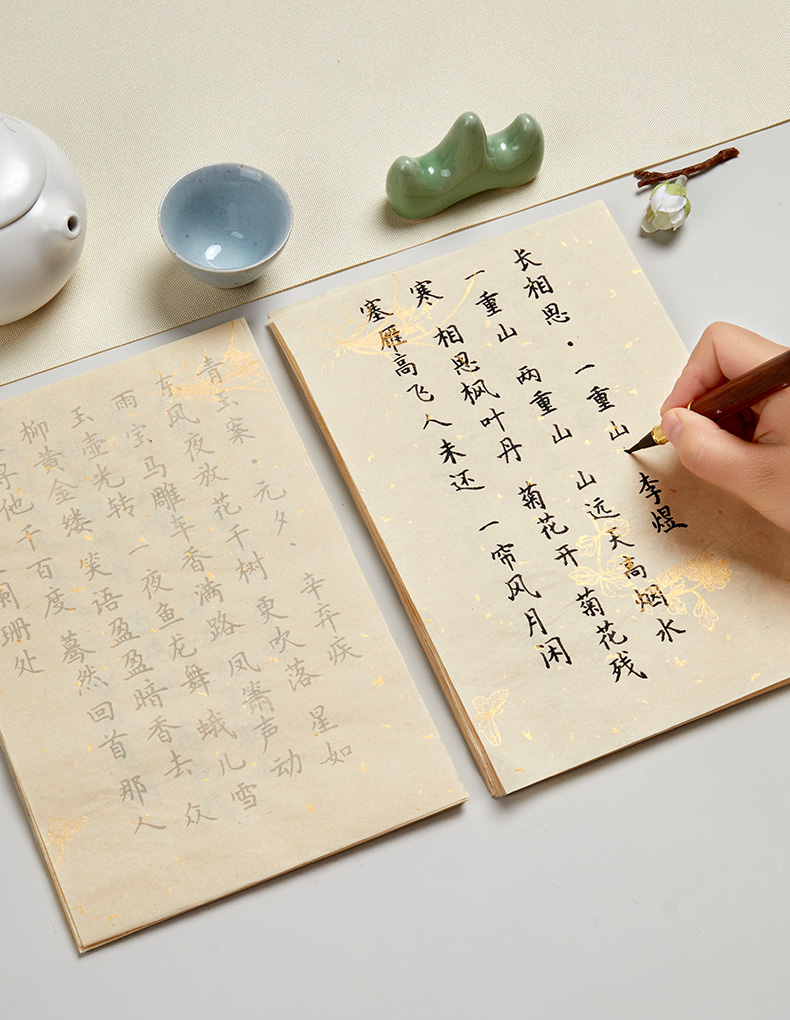 长相思·一重山 李煜
一重山 两重山 山远天高烟水
寒 相思枫叶丹 菊花开 菊花残
塞雁高飞人未还 一帘风月闲
青玉案·元夕、 辛弃疾
东风夜放花千树 更吹落 星如
雨 宝马雕车香满路 凤箫声动
玉壶光转 一夜鱼龙舞 蛾儿雪
柳黄金缕 笑语盈盈暗香去 众
寻他千百度 蓦然回首 那人
阑珊处